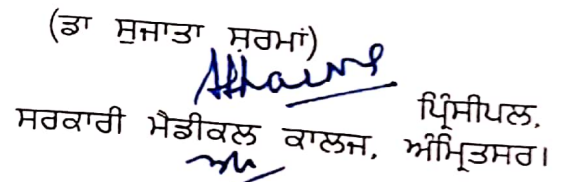 (ਡਾ ਸੁਜਾਤਾ ਸ਼ਰਮਾਂ)
ਪ੍ਰਿੰਸੀਪਲ,
ਸਰਕਾਰੀ ਮੈਡੀਕਲ ਕਾਲਜ, ਅੰਮ੍ਰਿਤਸਰ।